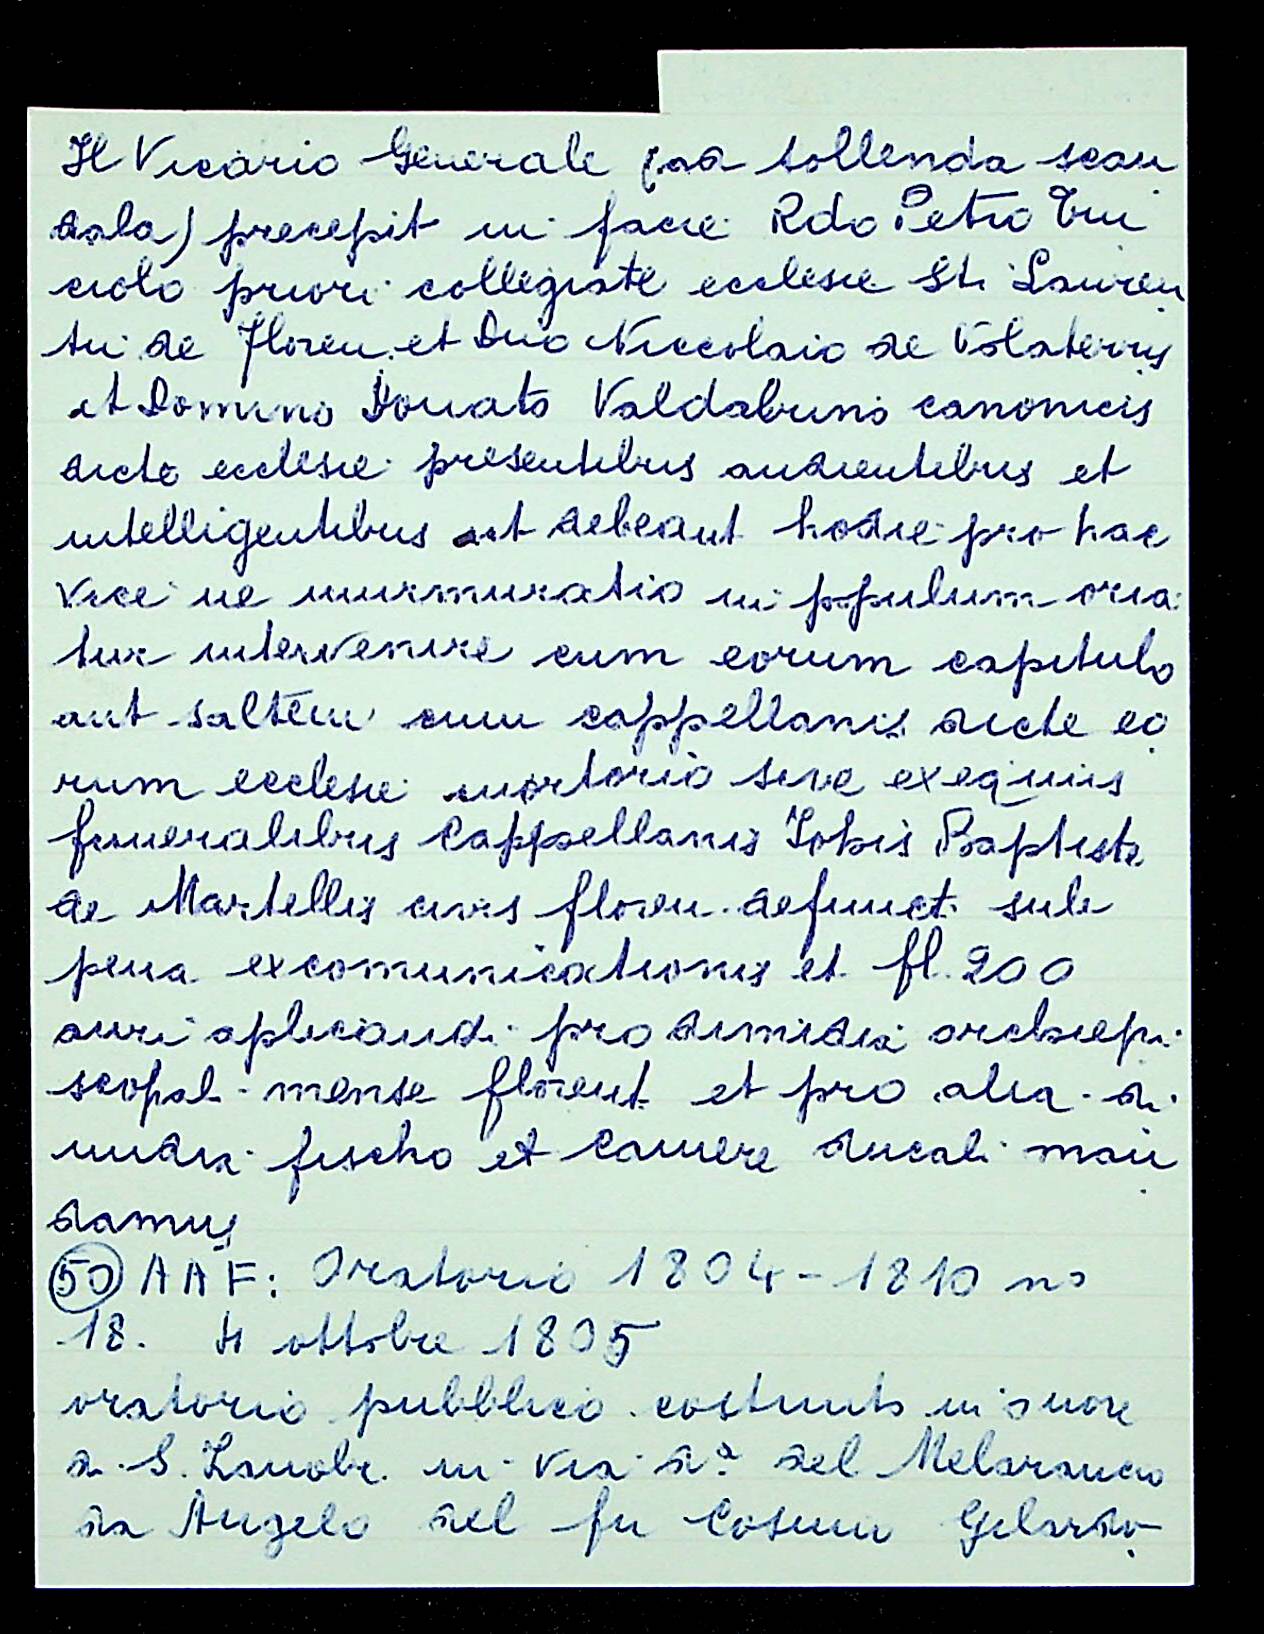 Il Vicario Generale (ad tollenda scan
dala) precepit in facie Rdo Petro Tru
ciolo priori collegiate ecclesie Sti Lauren
tii de Floren. et Dno Niccolaio de Volaterris
et Domino Donato Valdabrini canonicis
dicte ecclesie presentibus audientibus et
intelligentibus ut debeant hodie pro hac
vice ne murmuratio in populum oria
tur intervenire cum eorum capitulo
aut saltem cum cappellanis dicte eo
rum ecclesie mortorio sive exequiis
funeralibus Cappellanis Iohis Baptiste
de Martellis civis floren. defunct. sub
pena excomunicationis et fl. 200
auri aplicand. pro dimidia archiepi
scopal. mense florent. et pro alia di
midia fischo et Camere ducali man
damus
(50) AAF: Oratorio 1804-1810 no
18. 4 ottobre 1805
oratorio pubblico costruito in onore
di S. Zanobi in via d.ª del Melarancio
da Angelo del fu Cosimo Gilardo